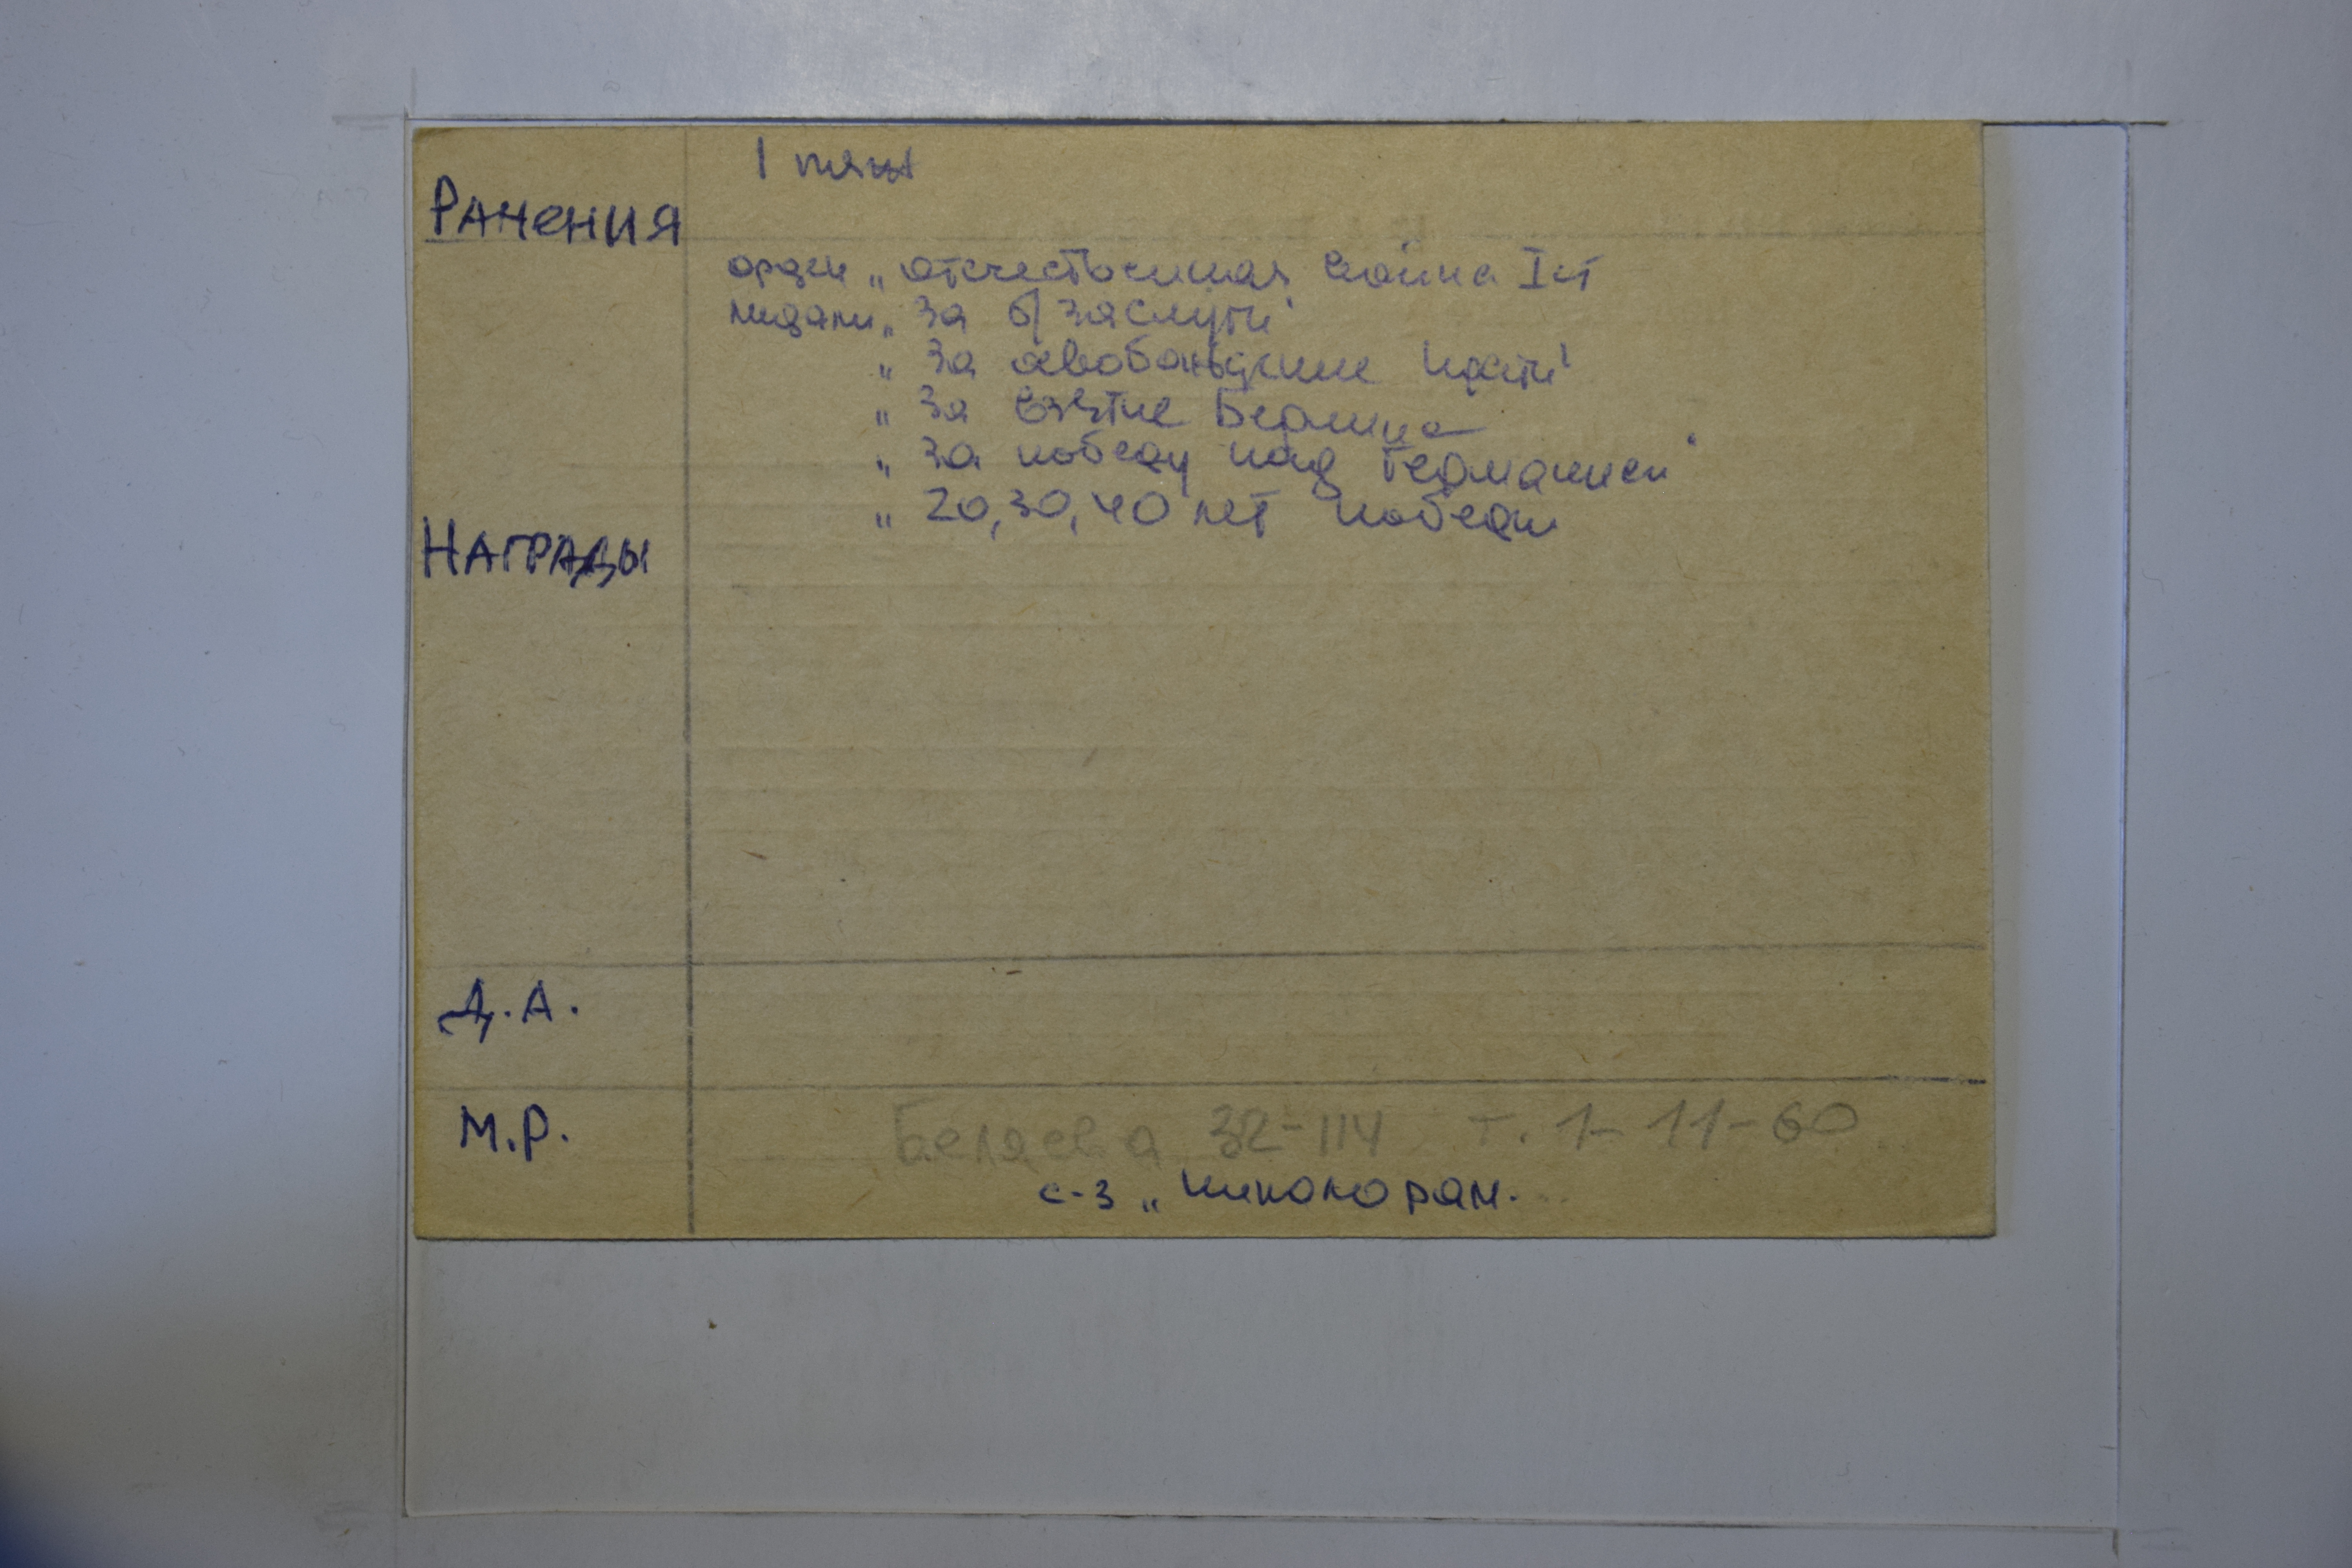 1 тяж
РАНЕНИЯ
орден „ отечественная война I ст
медали „ За б/заслуги"
„ За освобождение Праги"
„ За взятие Берлина
„ За победу над Германией"
„ 20, 30, 40 лет победы
НАГРАДЫ
Д.А.
М.Р.
Беляева 32-114 т. 1-11-60
с-з